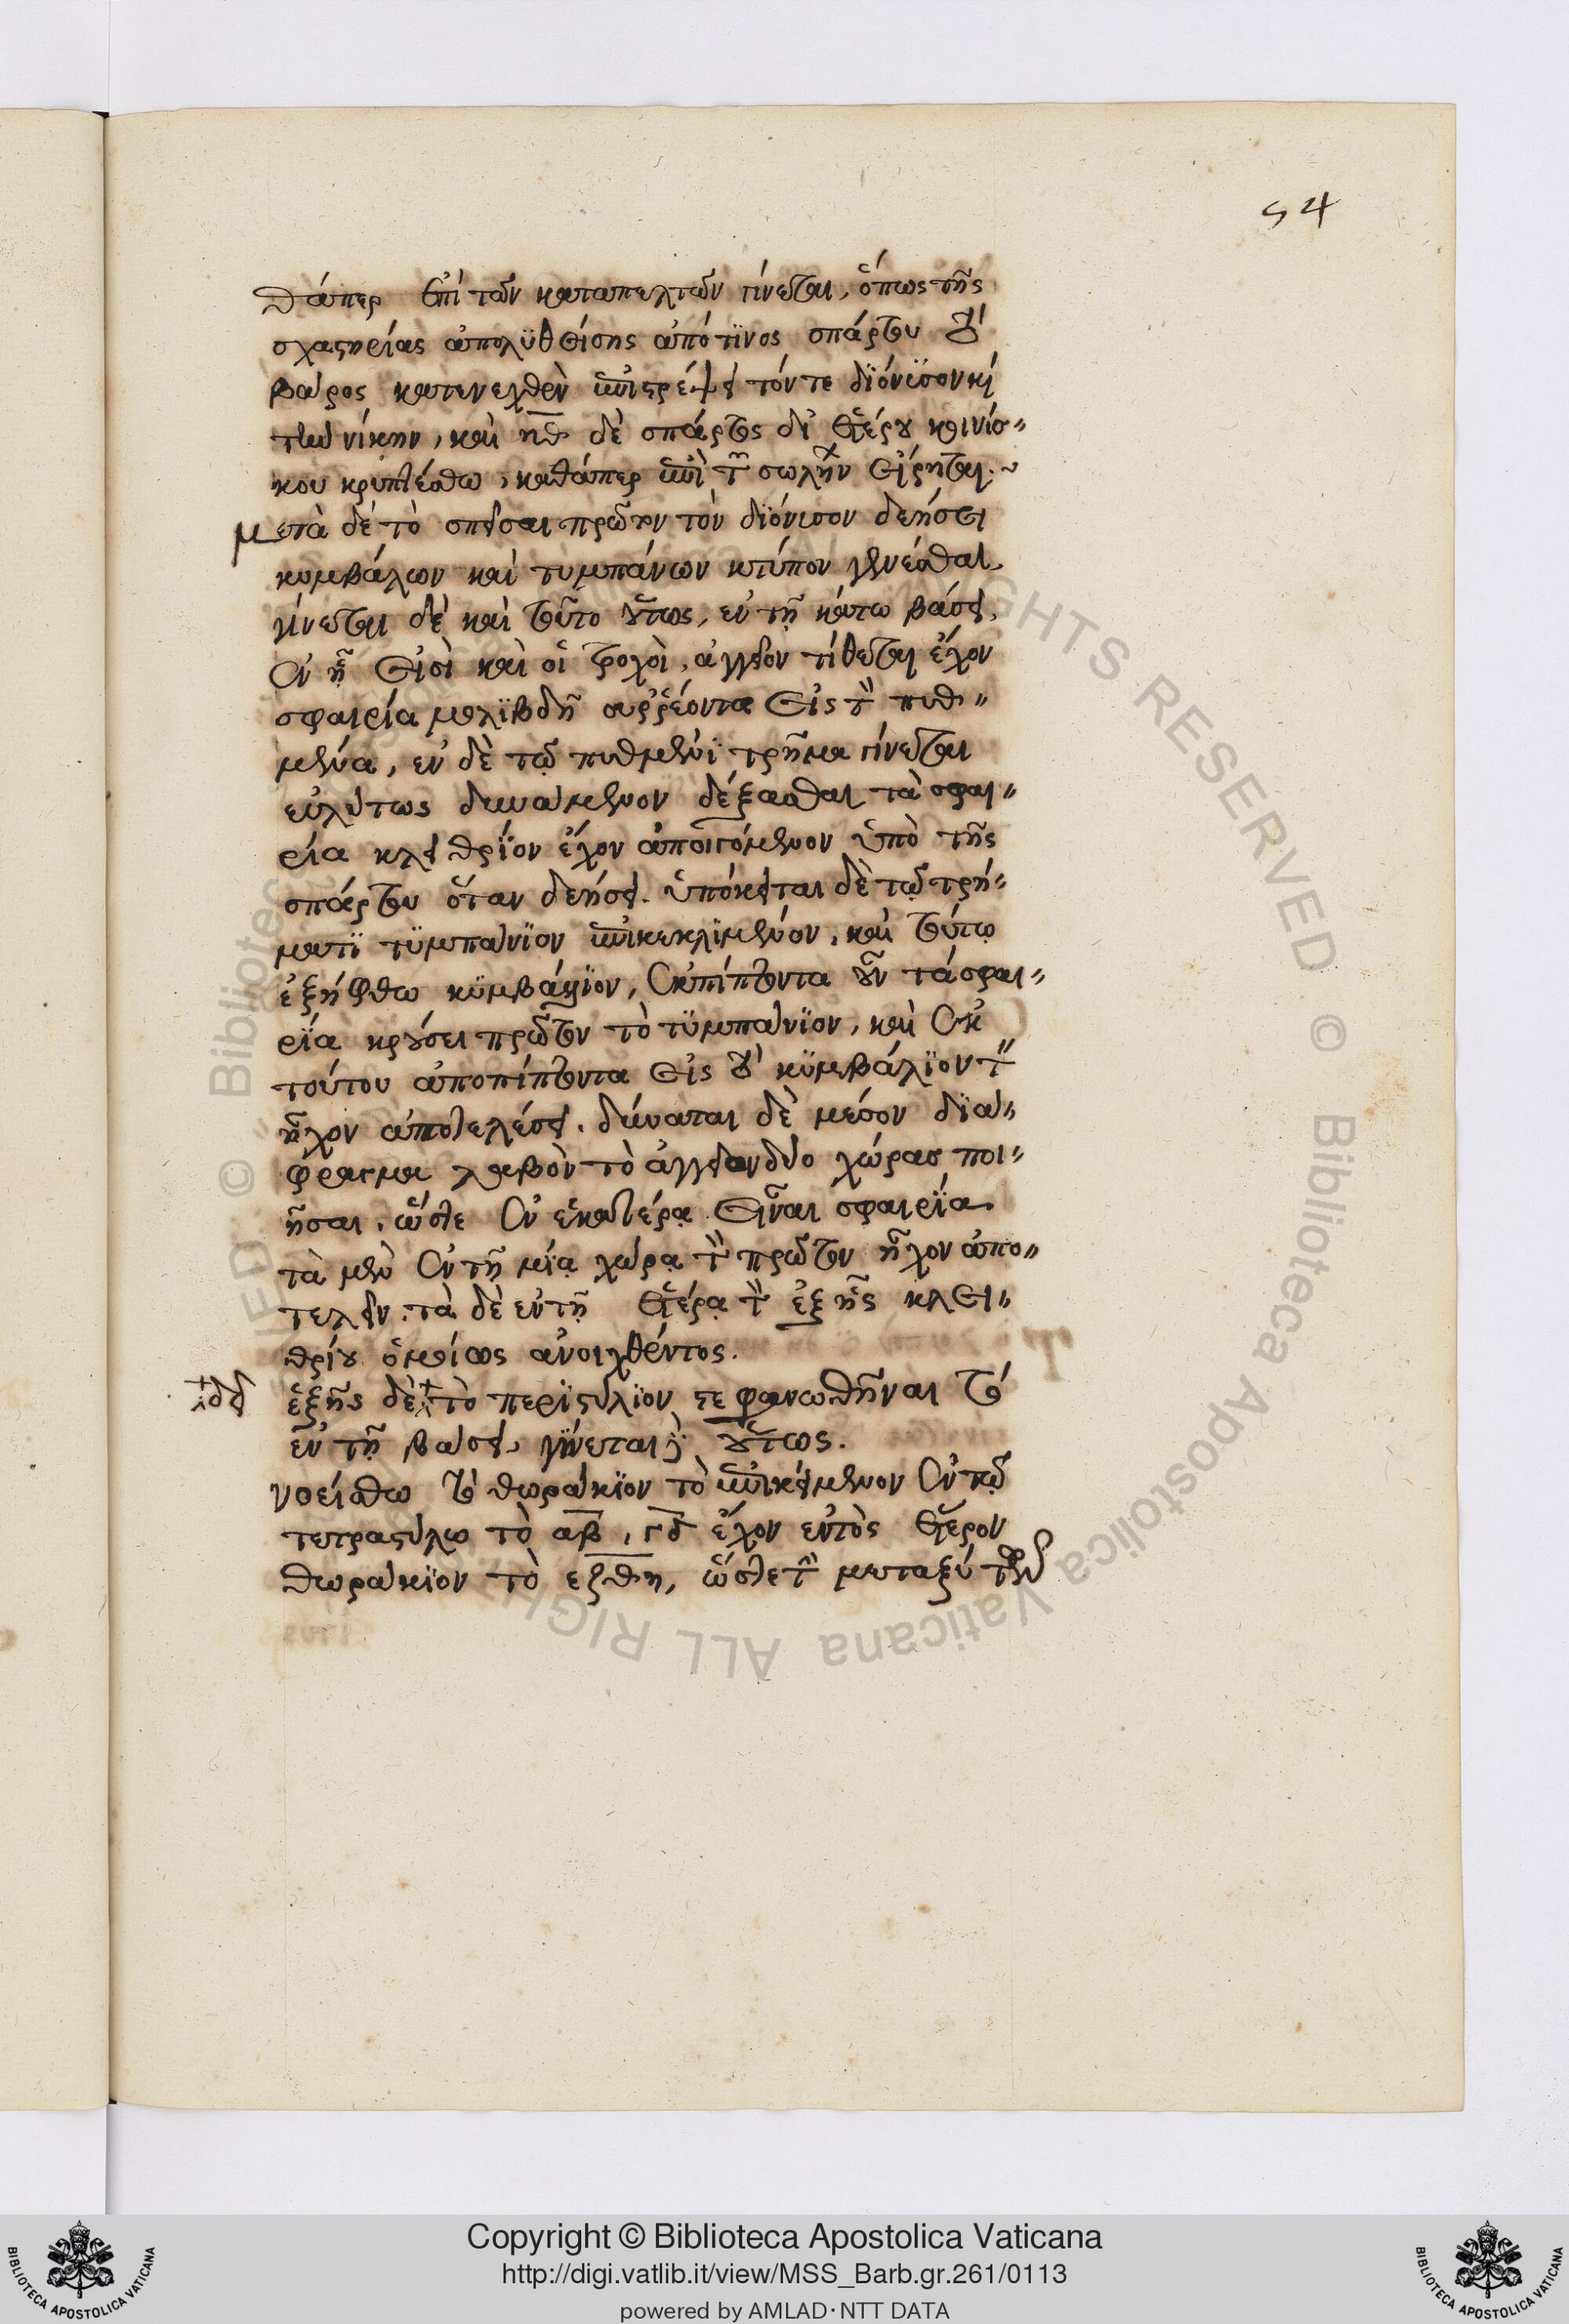 54
θάπερ ἐπὶ τῶν καταπελτῶν γίνεται, ὅπως τῆς
σχαστηρίας ἀπολϋθείσης ἀπό τϊνος σπάρτου τὸ
βάρος κατενεχθὲν ἐπιστρέψει τόν τε διόνϋσον καὶ
τὴν νίκην, καὶ ἡ δὲ σπάρτος δι' ἑτέρου κιονίσ-
κου κρυπτέσθω, καθάπερ ἐπὶ τῶν σωλήν εἴρηται.
μετὰ δὲ τὸ σπεῖσαι πρῶτον τὸν διόνισον δεήσει
κυμβάλων καὶ τυμπάνων κτύπον γενέσθαι.
γίνεται δὲ καὶ τοῦτο οὕτως, ἐν τῇ κάτω βάσει,
ἐν ᾗ εἰσὶ καὶ οἱ τροχοὶ, ἀγγεῖον τίθεται ἔχον
σφαιρία μολϊβδῆ συῤῥέοντα εἰς τὸν πυθ-
μένα, ἐν δὲ τῷ πυθμένϊ τρῆμα γίνεται
εὐλύτως δυνάμενον δέξασθαι τὰ σφαι-
ρία κλειθρίον ἔχον ἀποιγόμενον ὑπὸ τῆς
σπάρτου ὅταν δεήσει. ὑπόκειται δὲ τῷ τρή-
ματϊ τϋμπάνϊον ἐπικεκλϊμένον, καὶ τούτω
ἐξήφθω κϋμβάλϊον, ἐκπίπτοντα οὖν τά σφαι-
ρϊα κρούσει πρῶτον τὸ τϋμπάνϊον, καὶ ἐκ
τούτου ἀποπίπτοντα εἰς τὸ κϋμβάλϊον τὸν
ἦχον ἀποτελέσει. δύναται δὲ μέσον διά-
φραγμα λαβὸν τὸ ἀγγεῖον δύο χώρας ποι-
ῆσαι. ὥστε ἐν ἑκατέρᾳ εἶναι σφαιρϊα
τὰ μὲν ἐν τῇ μίᾳ χώρᾳ τὸν πρῶτον ἦχον ἀπο-
τελεῖν. τὰ δὲ ἐν τῇ ἑτέρᾳ τὸν ἑξῆς κλει-
θρίου ὁμοίως ἀνοιχθέντος.
ἑξῆς δὲ τὸ περϊστύλϊον στεφανωθῆναι τὸ
ἐν τῇ βάσει, γίνεται οὕτως.
νοείσθω τὸ θωράκϊον τὸ ἐπικείμενον ἐν τῷ
τετραστύλω τὸ αβ, γδ ἔχον ἐντὸς ἕτερον
θωράκϊον τὸ εζθη, ὥστε τὸν μεταξύ τῶν
Copyright © Biblioteca Apostolica Vaticana
http://digi.vatlib.it/view/MSS_Barb.gr.261/0113
powered by AMLAD·NTT DATA